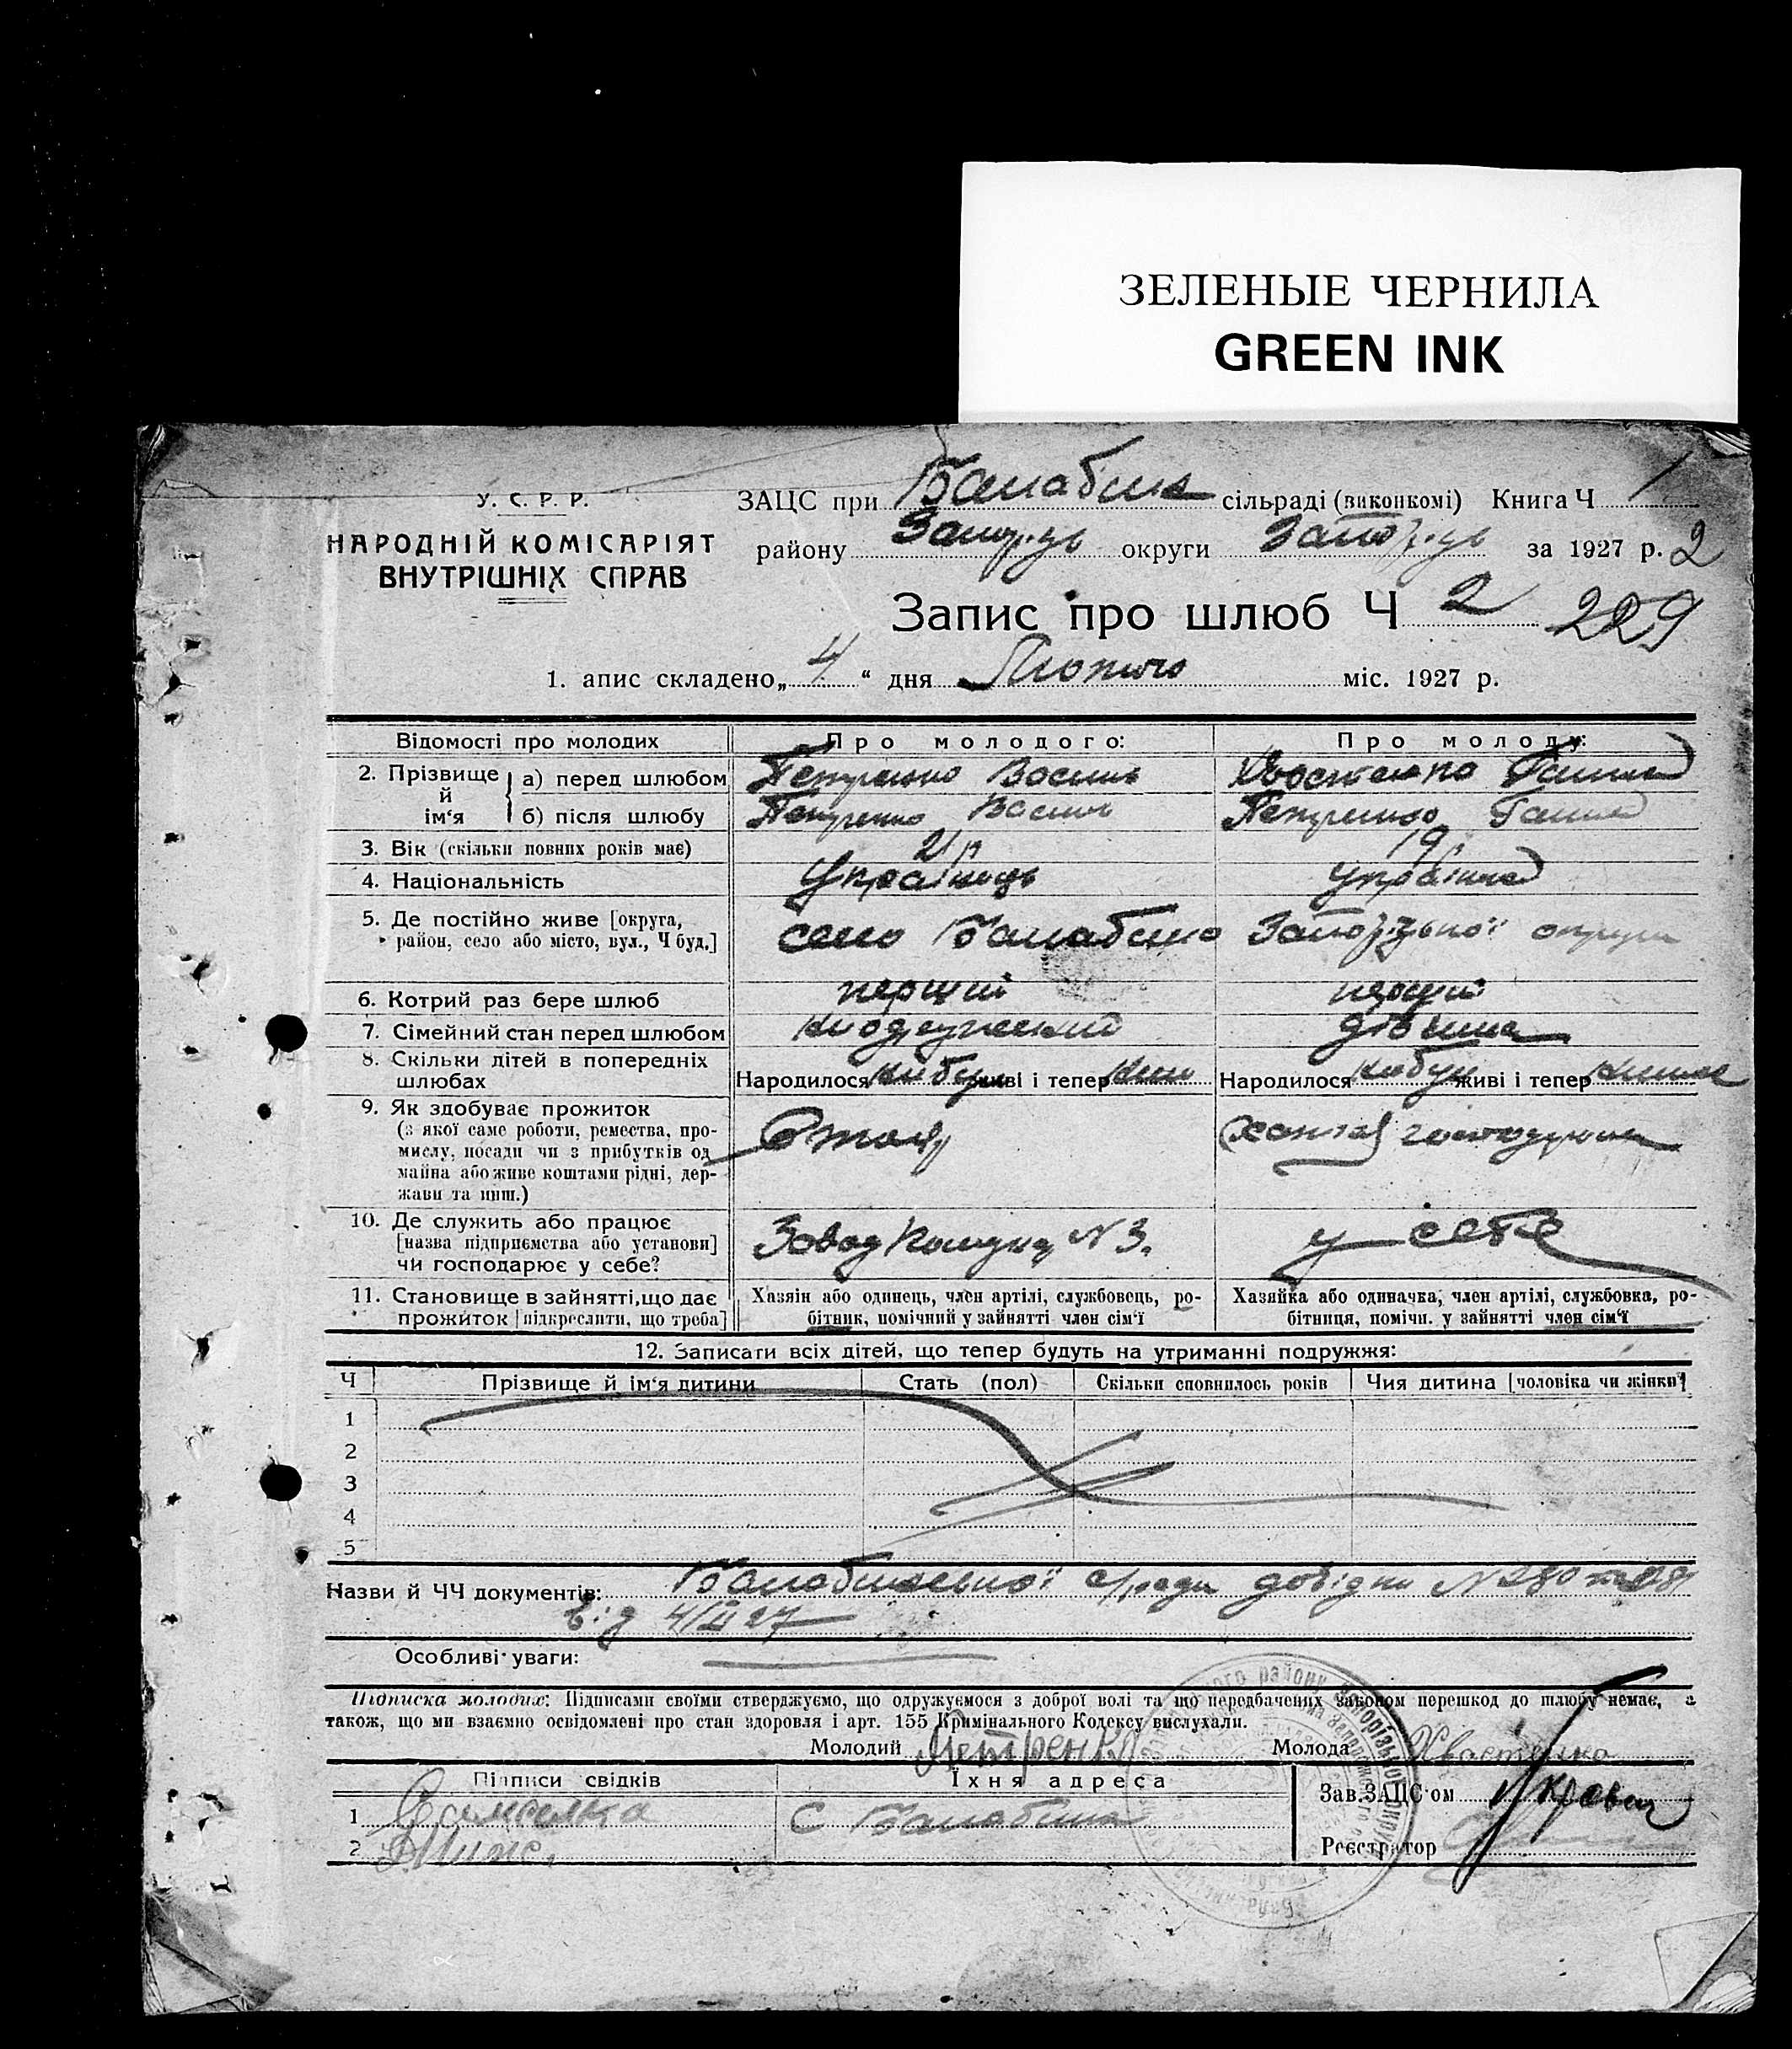 ЗЕЛЕНЫЕ ЧЕРНИЛА
GREEN INK
У. С. Р. Р.
НАРОДНІЙ КОМІСАРІЯТ
ВНУТРІШНІХ СПРАВ
ЗАЦС при Балабин сільраді (виконкомі) Книга Ч 1
району Запор. округи Запор. за 1927 р. 2
Запис про шлюб Ч 2 229
1. апис складено „4“ дня Лютого міс. 1927 р.
Відомості про молодих Про молодого: Про молоду:
2. Прізвище й ім‘я а) перед шлюбом Петренко Василь Хвостенко Ганна
б) після шлюбу Петренко Василь Петренко Ганна
3. Вік (скільки повних років має) 21 р 19 р
4. Національність Українець Українка
5. Де постійно живе [округа,
район, село або місто, вул., Ч буд.] село Балабино Запорізької округи
6. Котрий раз бере шлюб перший перший
7. Сімейний стан перед шлюбом дівиця
8. Скільки дітей в попередніх
шлюбах Народилося живі і тепер Народилося живі і тепер
9. Як здобуває прожиток
(з якої саме роботи, ремества, про-
мислу, посади чи з прибутків од
майна або живе коштами рідні, дер-
жави та инш.)
10. Де служить або працює
[назва підприємства або установи]
чи господарює у себе? Завод Комунар N 3. у себе
11. Становище в зайнятті, що дає
прожиток [підкреслити, що треба]
Хазяін або одинець, член артілі, службовець, ро-
бітник, помічний у зайнятті член сім‘ї
Хазяйка або одиначка, член артілі, службовка, ро-
бітниця, помічн. у зайнятті член сім‘ї
12. Записати всіх дітей, що тепер будуть на утриманні подружжя:
Ч Прізвище й ім‘я дитини Стать (пол) Скільки сповнилось років Чия дитина [чоловіка чи жінки]
1
2
3
4
5
Назви й ЧЧ документів: Балабинської с/ради довідки N 280
від 4/II 27
Особливі уваги:
Підписка молодих: Підписами своїми стверджуємо, що одружуємося з доброї волі та що передбачених законом перешкод до шлюбу немає, а
також, що ми взаємно освідомлені про стан здоровля і арт. 155 Кримінального Кодексу вислухали.
Молодий Петренко Молода Хвостенко
Підписи свідків Їхня адреса
1 С Балабина
2
Зав. ЗАЦС‘ом
Реєстратор